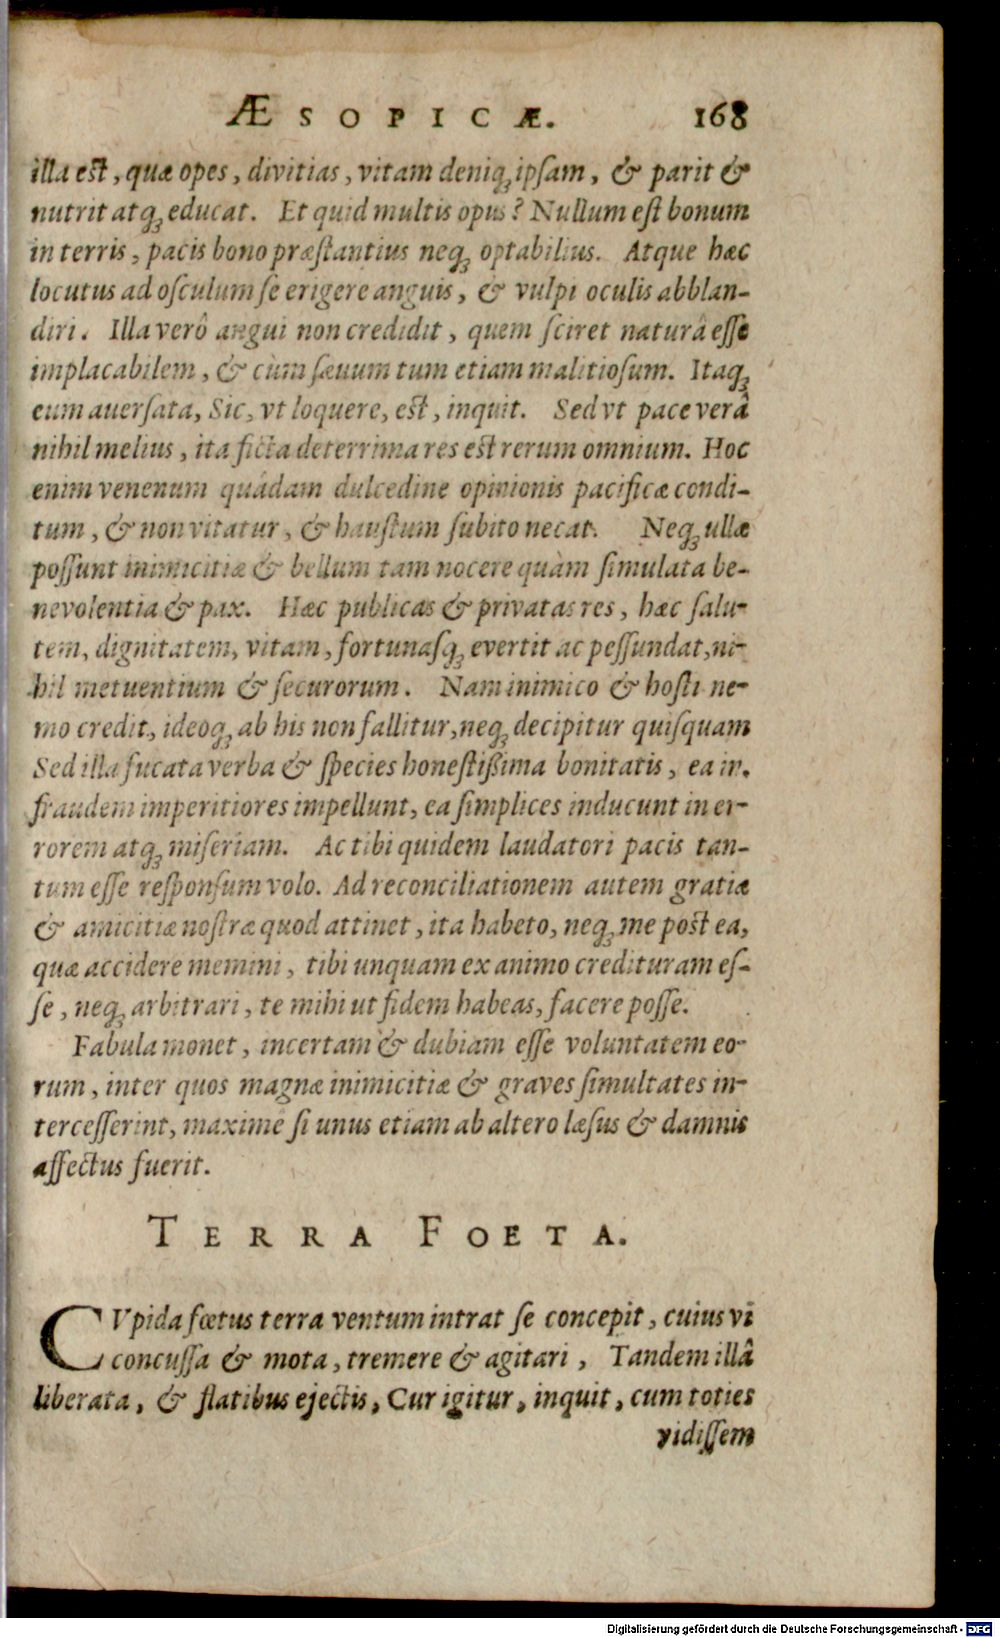 ÆSOPICÆ. 168
illa est, quæ opes, divitias, vitam deniq́ꝫ ipsam, & parit &
nutrit atqꝫ educat. Et quid multis opus? Nullum est bonum
in terris, pacis bono præstantius neqꝫ optabilius. Atque hæc
locutus ad osculum se erigere anguis, & vulpi oculis abblan-
diri. Illa verô angui non credidit, quem sciret naturâ esse
implacabilem, & cùm sævum tum etiam malitiosum. Itaqꝫ
eum aversata, Sic, vt loquere, est, inquit. Sed vt pace verâ
nihil melius, ita ficta deterrima res est rerum omnium. Hoc
enim venenum quádam dulcedine opinionis pacificæ condi-
tum, & non vitatur, & haustum subito necat. Neqꝫ ullæ
possunt inimicitiæ & bellum tam nocere quàm simulata be-
nevolentia & pax. Hæc publicas & privatas res, hæc salu-
tem, dignitatem, vitam, fortunasqꝫ evertit ac pessundat, ni-
hil metuentium & securorum. Nam inimico & hosti ne-
mo credit, ideoqꝫ ab his non fallitur, neqꝫ decipitur quisquam
Sed illa fucata verba & species honestißima bonitatis, ea in
fraudem imperitiores impellunt, ea simplices inducunt in er-
rorem atqꝫ miseriam. Ac tibi quidem laudatori pacis tan-
tum esse responsum volo. Ad reconciliationem autem gratiæ
& amicitiæ nostræ quod attinet, ita habeto, neqꝫ me post ea,
quæ accidere memini, tibi unquam ex animo credituram es-
se, neqꝫ arbitrari, te mihi ut fidem habeas, facere posse.
Fabula monet, incertam & dubiam esse voluntatem eo-
rum, inter quos magnæ inimicitiæ & graves simultates in-
tercesserint, maximè si unus etiam ab altero læsus & damnis
affectus fuerit.
TERRA FOETA.
CVpida fœtus terra ventum intrat se concepit, cuius vi
concussa & mota, tremere & agitari, Tandem illâ
liberata, & flatibus ejectis, Cur igitur, inquit, cum toties
vidissem
Digitalisierung gefördert durch die Deutsche Forschungsgemeinschaft - DFG